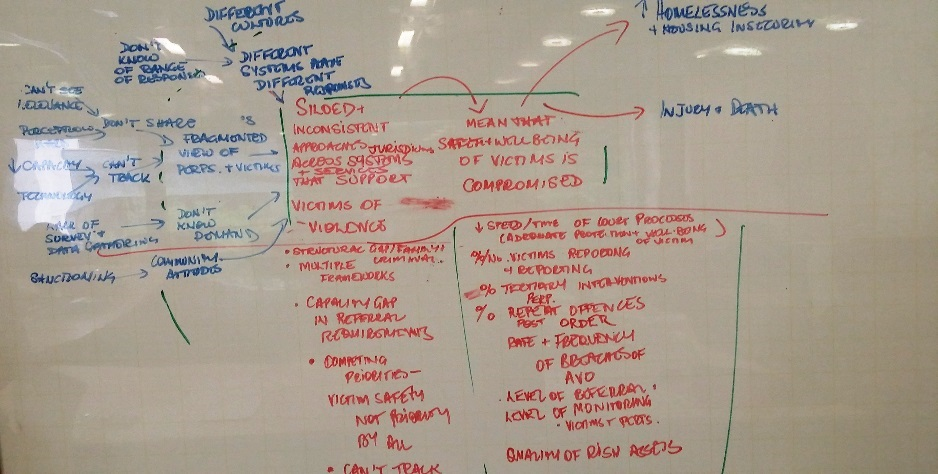 DIFFERENT
CULTURES
DON'T
KNOW
OF RANGE
OF RESPONSE
DIFFERENT
SYSTEMS HAVE
DIFFERENT
RESPONSES
CAN'T SEE
RELEVANCE
PERCEPTION
DON'T SHARE
'S
FRAGMENTED
VIEW OF
PERPS. + VICTIMS
↓ CAPACITY
CAN'T
TRACK
TECHNOLOGY
LACK OF
SURVEY +
DATA GATHERING
DON'T
KNOW
DEMAND
SANCTIONING
COMMUNITY
ATTITUDES
SILOED +
INCONSISTENT
APPROACHES JURISDICTIONS
ACROSS SYSTEMS
+ SERVICES
THAT SUPPORT
VICTIMS OF
VIOLENCE
MEAN THAT
SAFETY + WELL BEING
OF VICTIMS IS
COMPROMISED
↑ HOMELESSNESS
+ HOUSING INSECURITY
INJURY + DEATH
• STRUCTURAL GAP/FAMILY/
CRIMINAL
• MULTIPLE
FRAMEWORKS
• CAPABILITY GAP
IN REFERRAL
REQUIREMENTS
• COMPETING
PRIORITIES -
VICTIM SAFETY
NOT PRIORITY
BY ALL
• CAN'T TRACK
↓ SPEED/TIME OF COURT PROCESSES
(ADEQUATE PROTECTION + WELL-BEING
OF VICTIM)
%/No. VICTIMS REPORTING
+ REPORTING
% TERTIARY INTERVENTIONS
PERP.
% REPEAT OFFENCES
POST ORDER
RATE + FREQUENCY
OF BREACHES OF
AVO
. LEVEL OF REFERRAL.
LEVEL OF MONITORING
- VICTIMS + PERPS.
QUALITY OF RISK ASSESS